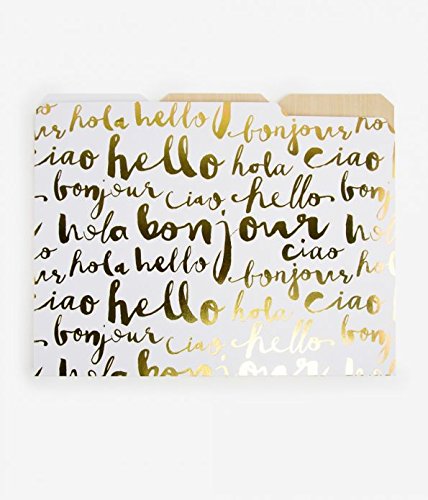 hola hello bonjour
ciao hello hola ciao
bonjour ciao hello
hola bonjour ciao
hola hello bonjour
ciao hello hola ciao
bonjour ciao hello bon
hola bonjour
ciao